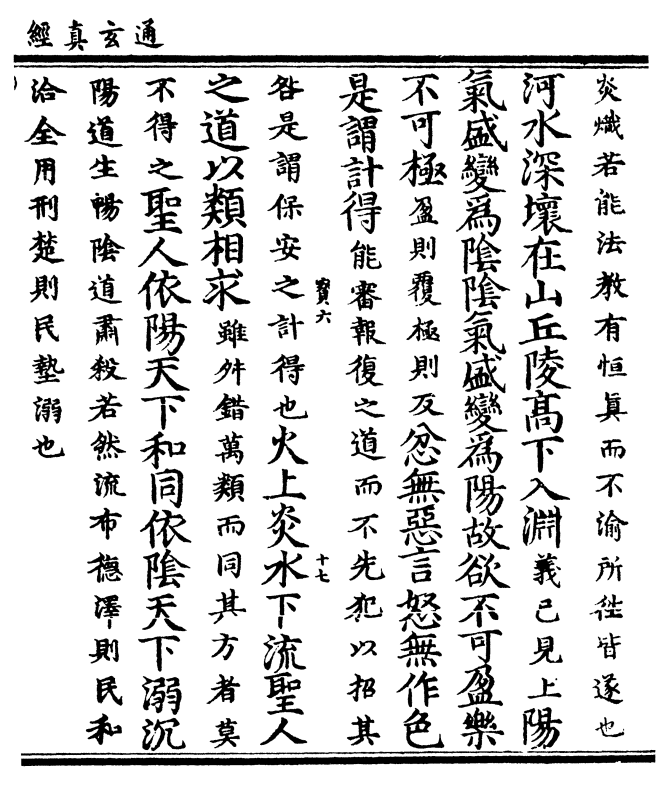 通玄真經
炎熾若能法教有恒真而不渝所徃皆遂也
河水深壤在山丘陵高下入淵義已見上陽
氣盛變爲陰陰氣盛變爲陽故欲不可盈樂
不可極盈則覆極則反忿無惡言怒無作色
是謂計得能審報復之道而不先犯以招其
咎是謂保安之計得也火上炎水下流聖人
寳六
十七
之道以類相求雖舛錯萬類而同其方者莫
不得之聖人依陽天下和同依陰天下溺沉
陽道生暢陰道肅殺若然流布德澤則民和
洽全用刑楚則民墊溺也